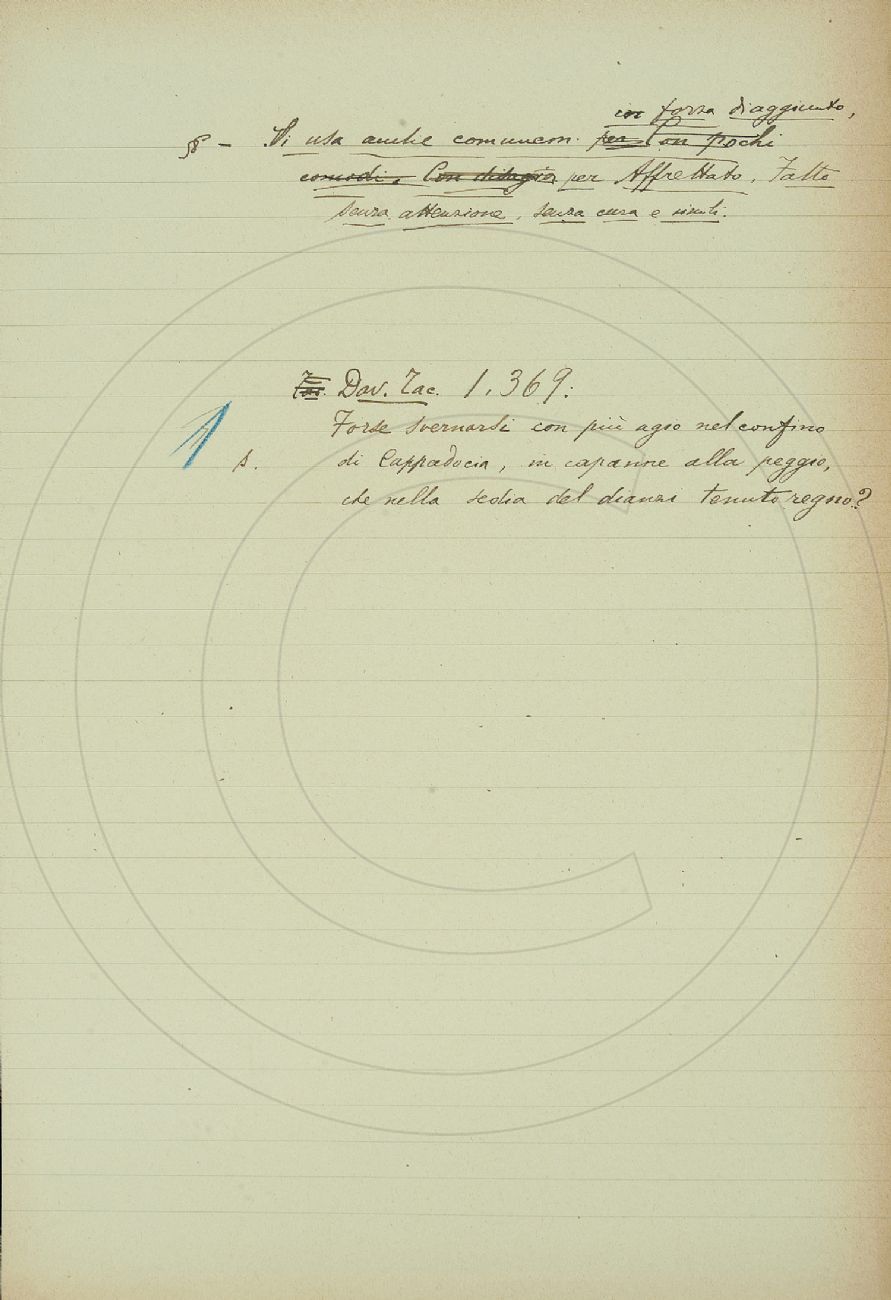 in forza di aggiunto,
§ – Si usa anche comunem. per Con pochi
comodi, Con disagio per Affrettato, Fatto
senza attenzione, senza cura e simili.
Tac. Dav. Tac. 1.369:
Forse svernarsi con più agio nel confino
S. di Cappadocia, in capanne alla peggio,
che nella sedia del dianzi tenuto regno?